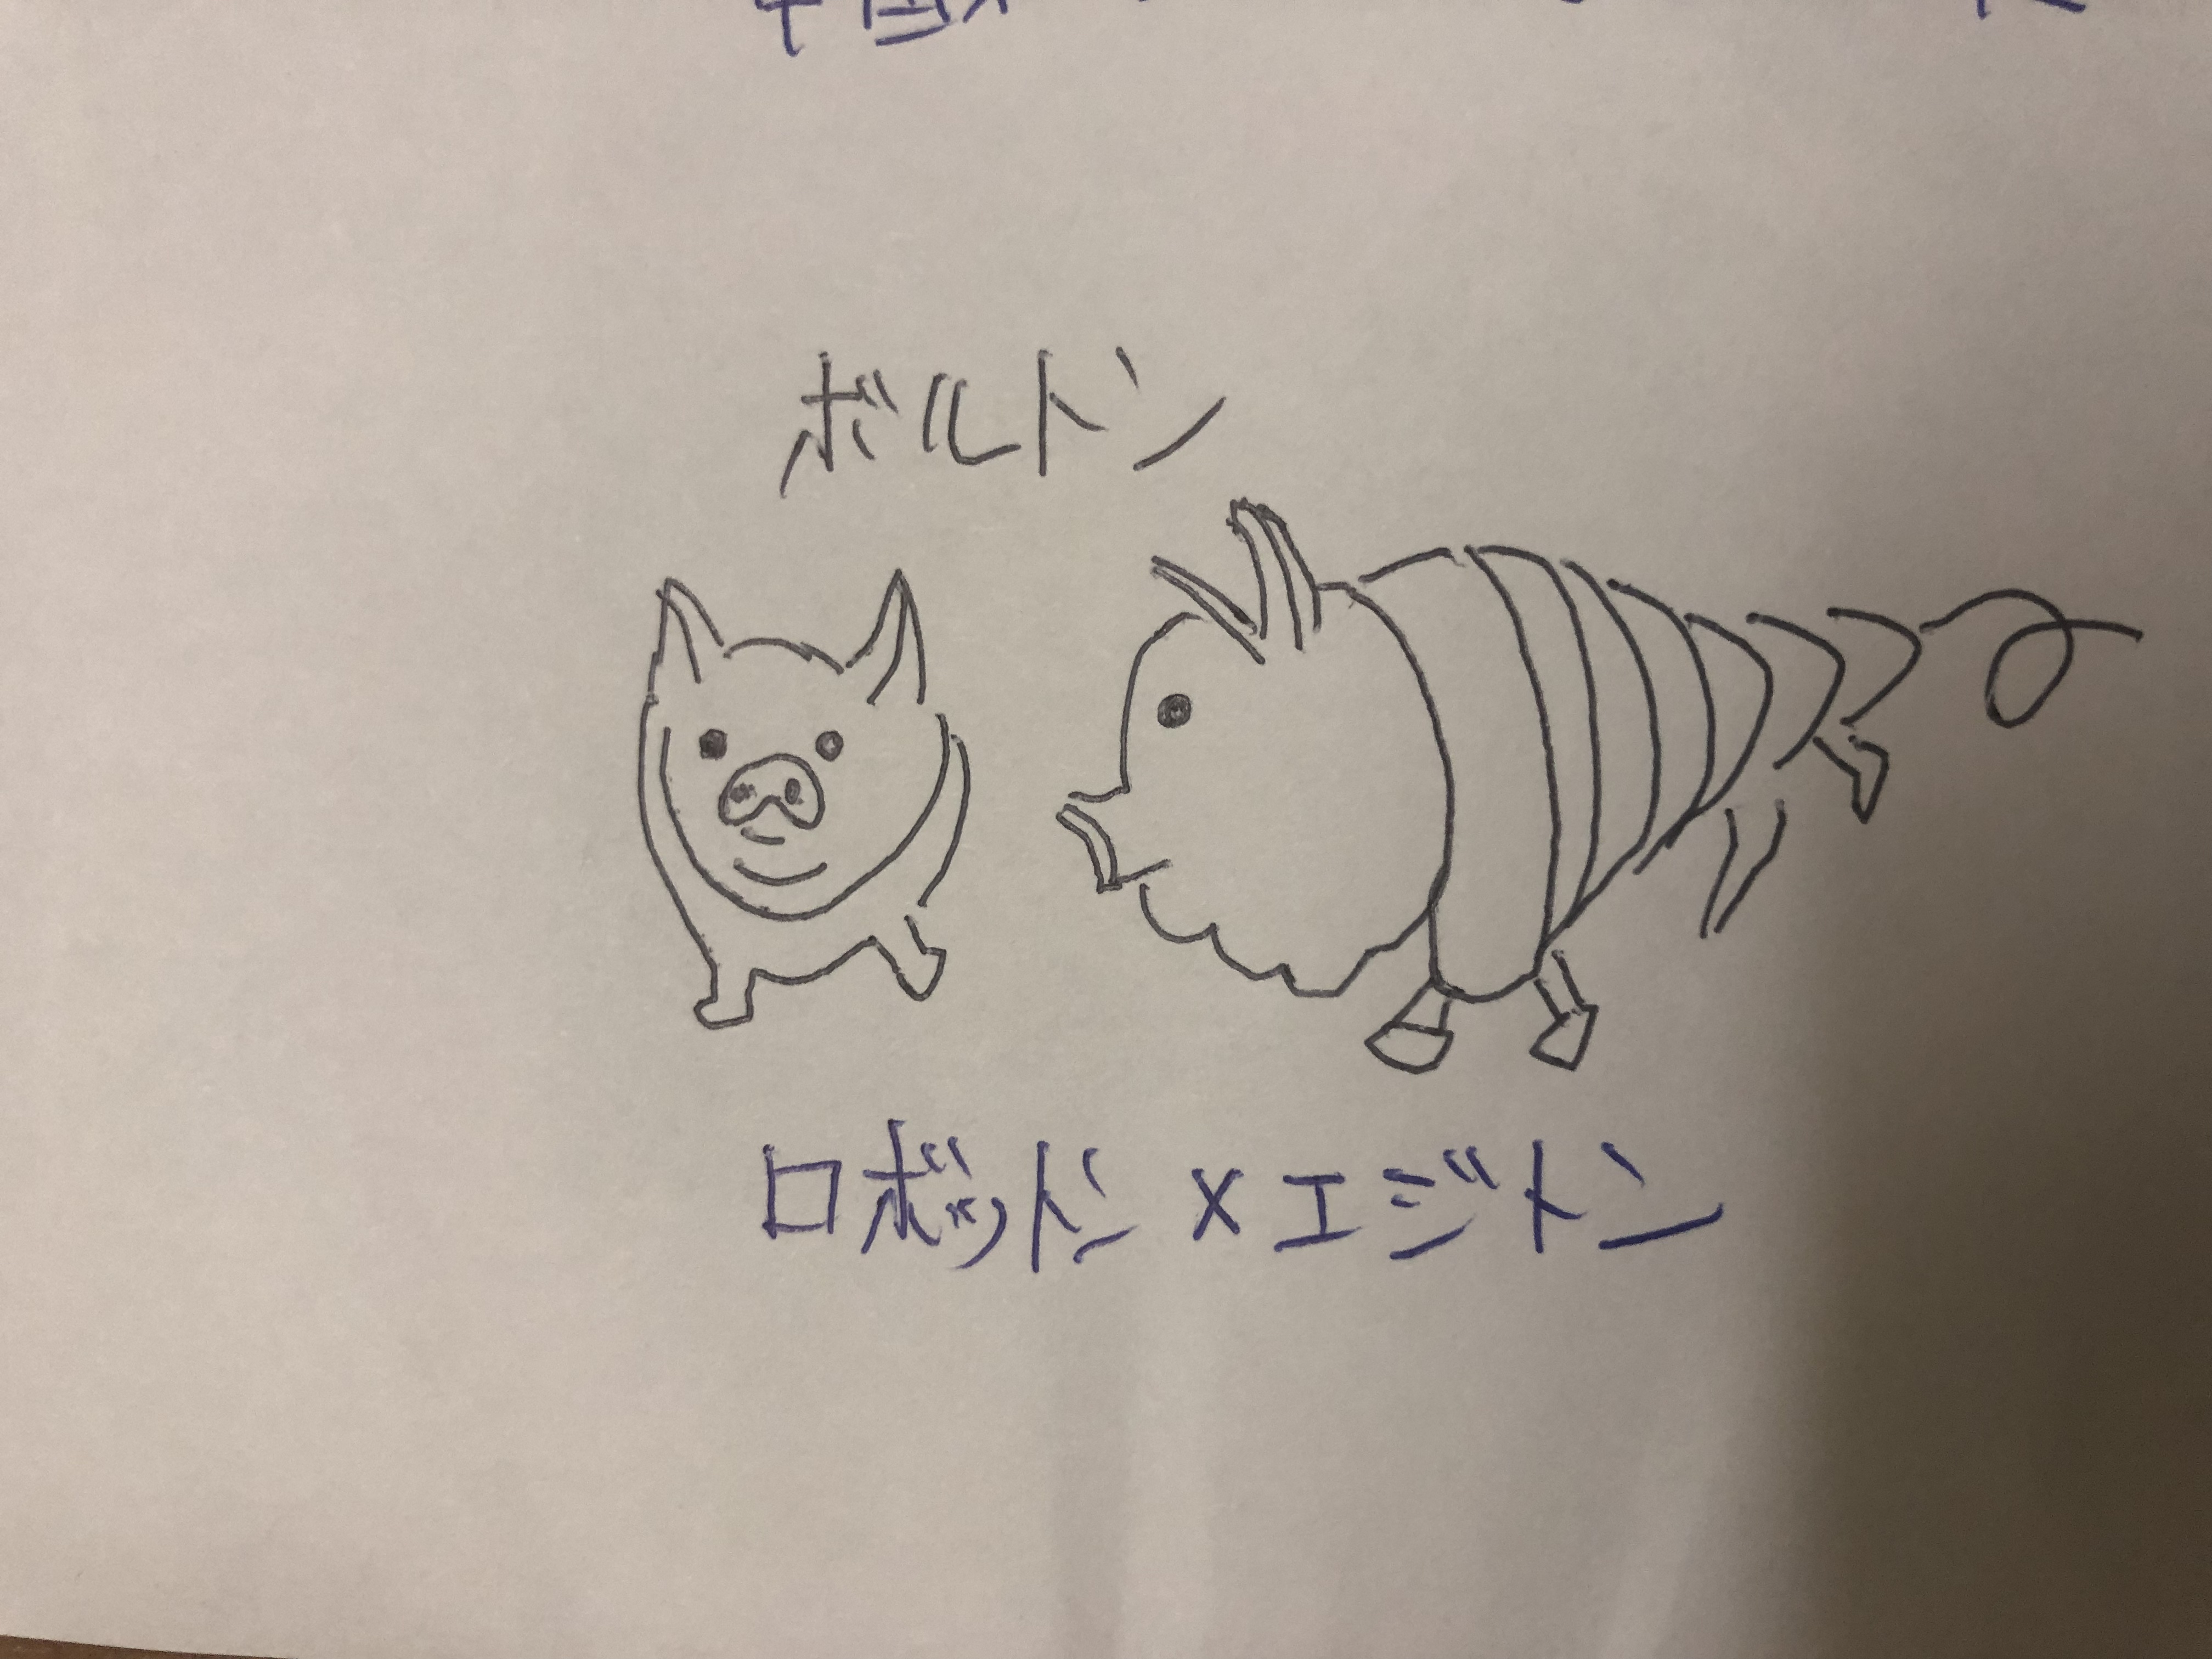 ボルトン
ロボットン×エジトン